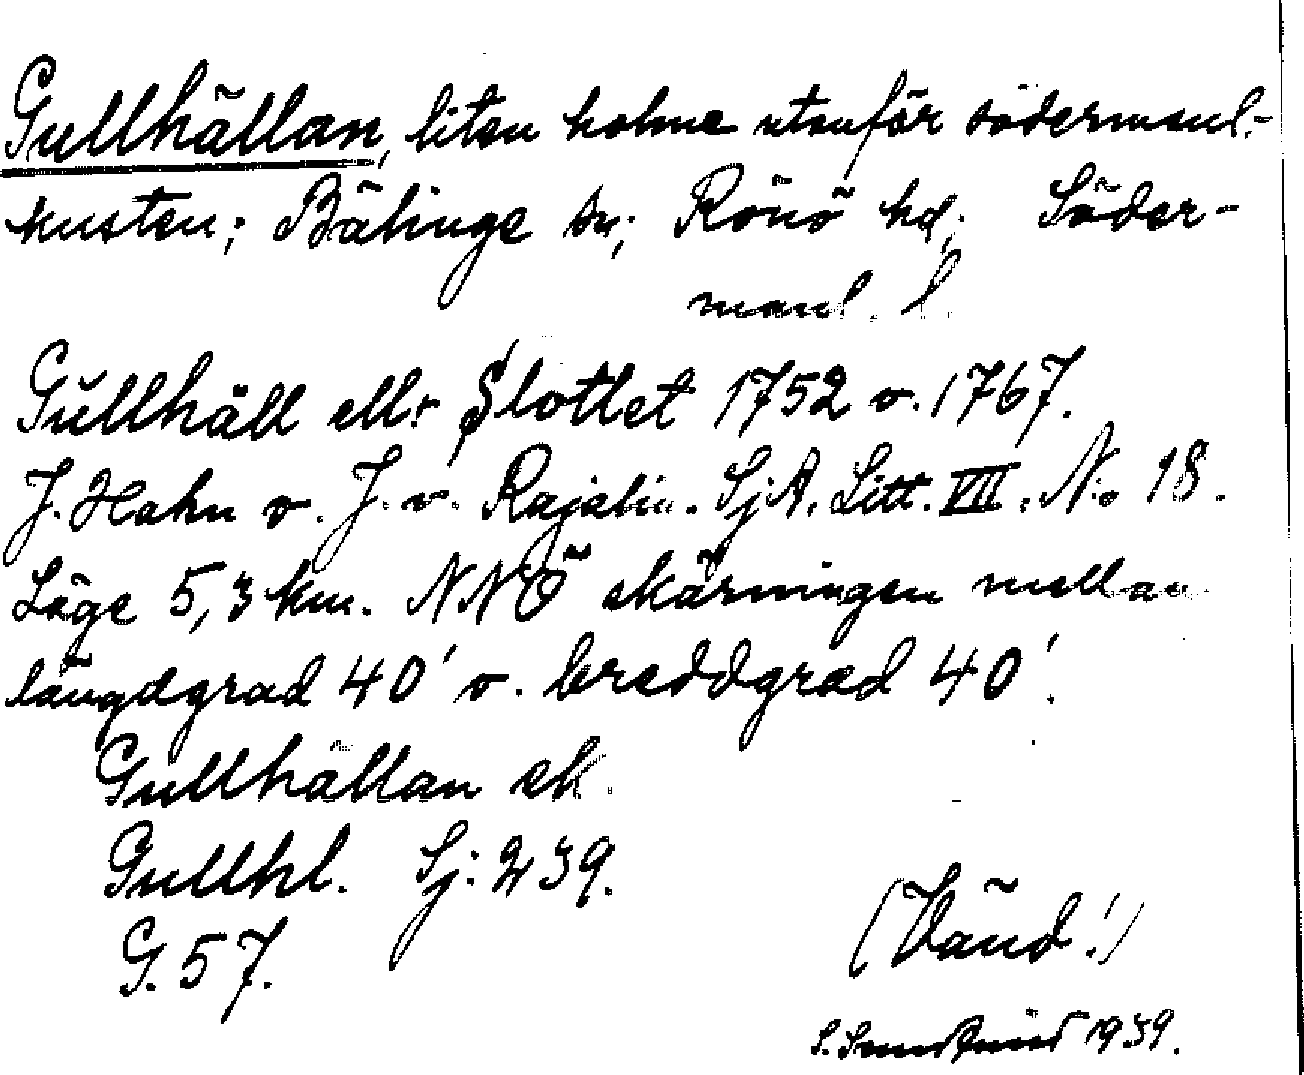 Gullhällan, liten holme utanför södermanl.-
kusten; Bälinge sn; Rönö hd; Söder-
manl. l.
Gullhäll ell: Slottet 1752 o. 1767.
J. Hahn o. J. v. Rajalin. SjA. Litt. VIII. No 18.
Läge 5,3 km. NNÖ skärningen mellan
längdgrad 40' o. breddgrad 40'.
Gullhällan ek.
Gullhl. Sj: 239.
G. 57.
(Vänd!)
S. 1939.